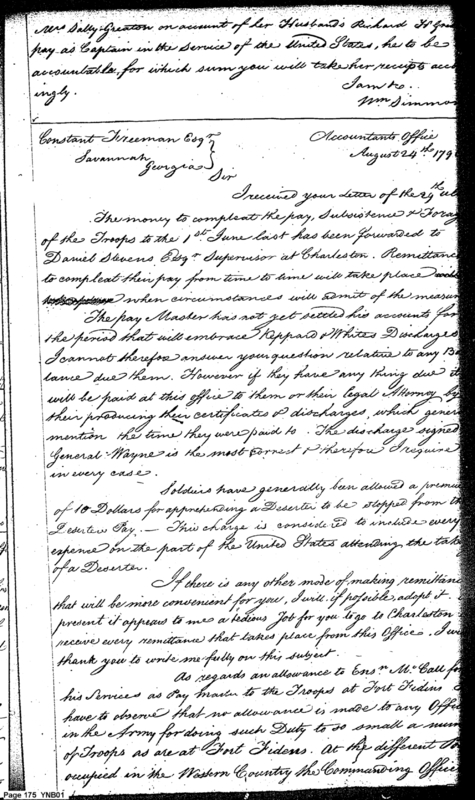 Mrs Sally Greaton on account of her Husband's Richard H Grea
pay as Captain in the Service of the United States, he to be
accountable, for which sum you will take her receipts acc
ingly.
I am &c.
Wm Simmon
Constant Freeman Esqr
Savannah
Georgia
Accountants Office
August 24th 179
Sir
I received your Letter of the 24th Ul
The money to compleat the pay, Subsistence & Forag
of the Troops to the 1st June last has been forwarded to
Daniel Stevens Esqr Supervisor at Charleston. Remittance
to compleat their pay from time to time will take place
when circumstances will admit of the measur
The pay Master has not yet settled his accounts for
the period that will embrace Keppard & Whites Discharges
I cannot therefore answer your question relative to any Ba
lance due them. However if they have any thing due it
will be paid at this office to them or their Legal Attorney by
their producing their certificates & discharges, which gener
mention the time they were paid to. The discharge signed
General Wayne is the most correct & therefore I require
in every case.
Soldiers have generally been allowed a premiu
of 10 Dollars for apprehending a Deserter to be stopped from th
Deserters Pay. — This charge is considered to include every
expence on the part of the United States attending the tak
of a Deserter.
If there is any other mode of making remittanc
that will be more convenient for you, I will, if possible, adopt it.
present it appears to me a tedious Job for you to go to Charleston
receive every remittance that takes place from this Office. I wi
thank you to write me fully on this subject.
As regards an allowance to Ensn McCall for
his Services as Pay Master to the Troops at Fort Fidius
have to observe that no allowance is made to any Offic
in the Army for doing such Duty to so small a num
of Troops as are at Fort Fidius. At the different
occupied in the Western Country the Commanding Office
Page 175 YNB01